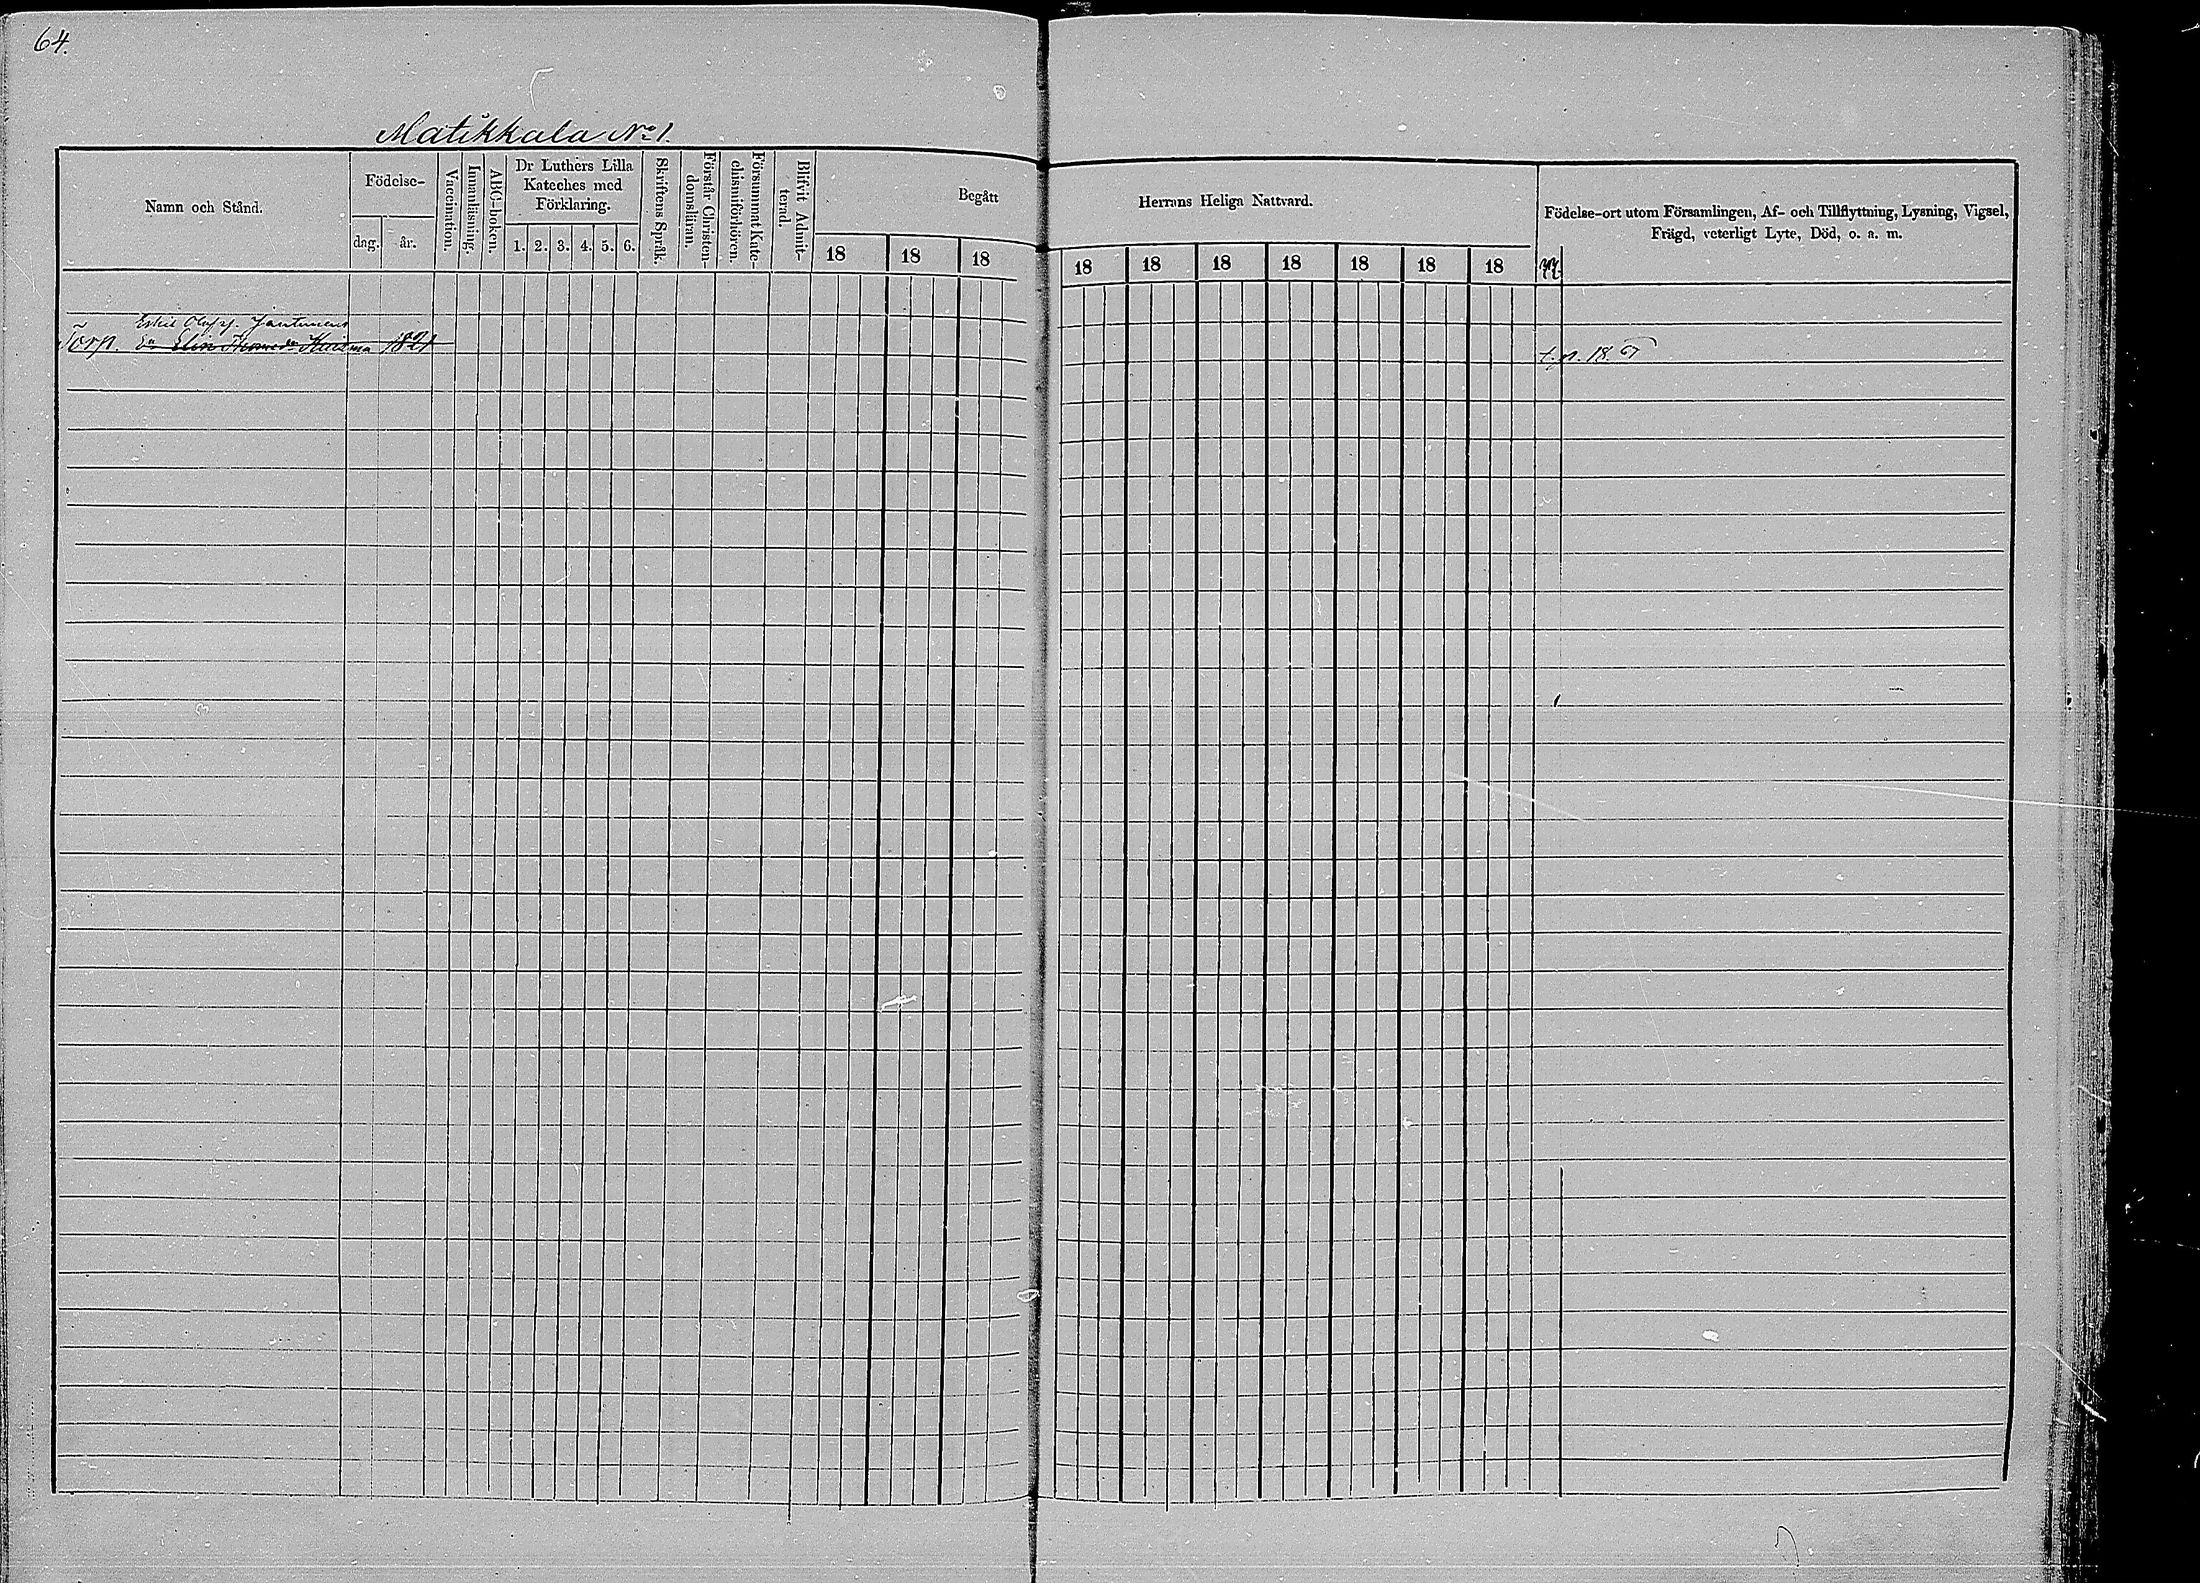 64.
Matikkala No 1.
Namn och Stånd.
Födelse-
dag.
år.
Vaccination.
Innanläsning.
ABC-boken.
Dr Luthers Lilla
Kateches med
Förklaring.
1. 2. 3. 4. 5. 6.
Skriftens Språk.
Förstår Christen-
domsläran.
Försummat Kate-
chismiförhören.
Blifvit Admit-
terad.
Begått
18 18 18
Herrans Heliga Nattvard.
18 18 18 18 18 18 18
Födelse-ort utom Församlingen, Af- och Tillflyttning, Lysning, Vigsel,
Frägd, veterligt Lyte, Död, o. a. m.
Eskil Olofss. Jantunens
Torp. Ea Elin 1821
t. p. 18.